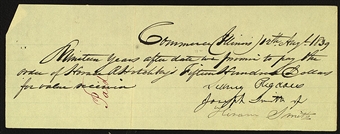 Commerce Illinois 12th Augt. 1839
Nineteen Years after date we promise to pay the
order of Horace R. Hotchkiss Fifteen Hundred Dollars
for value received
Sidney Rigdon
Joseph Smith Jr
Hiram Smith